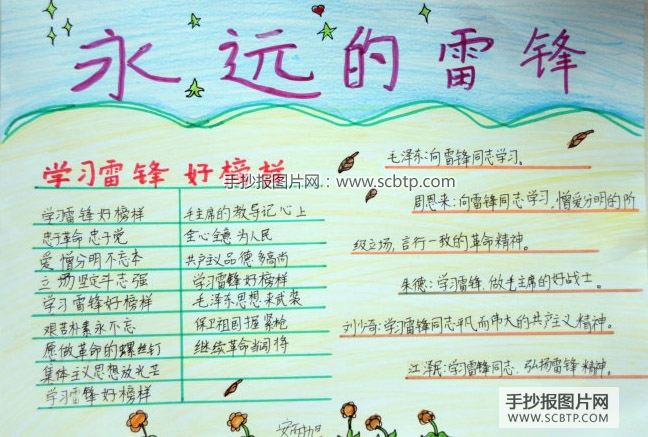 永远的雷锋
学习雷锋 好榜样
手抄报图片网:www.scbtp.com
学习雷锋好榜样
忠于革命忠于党
爱憎分明不忘本
立场坚定斗志强
学习雷锋好榜样
艰苦朴素永不忘
愿做革命的螺丝钉
集体主义思想放光芒
学习雷锋好榜样
毛主席的教导记心上
全心全意为人民
共产主义品德多高尚
学习雷锋好榜样
毛泽东思想来武装
保卫祖国握紧枪
继续革命当闯将
毛泽东:向雷锋同志学习。
周恩来:向雷锋同志学习,憎爱分明的阶
级立场,言行一致的革命精神。
朱德:学习雷锋,做毛主席的好战士。
刘少奇:学习雷锋同志平凡而伟大的共产主义精神。
江泽民:学习雷锋同志,弘扬雷锋精神。
手抄报图片网
www.SCBTP.com